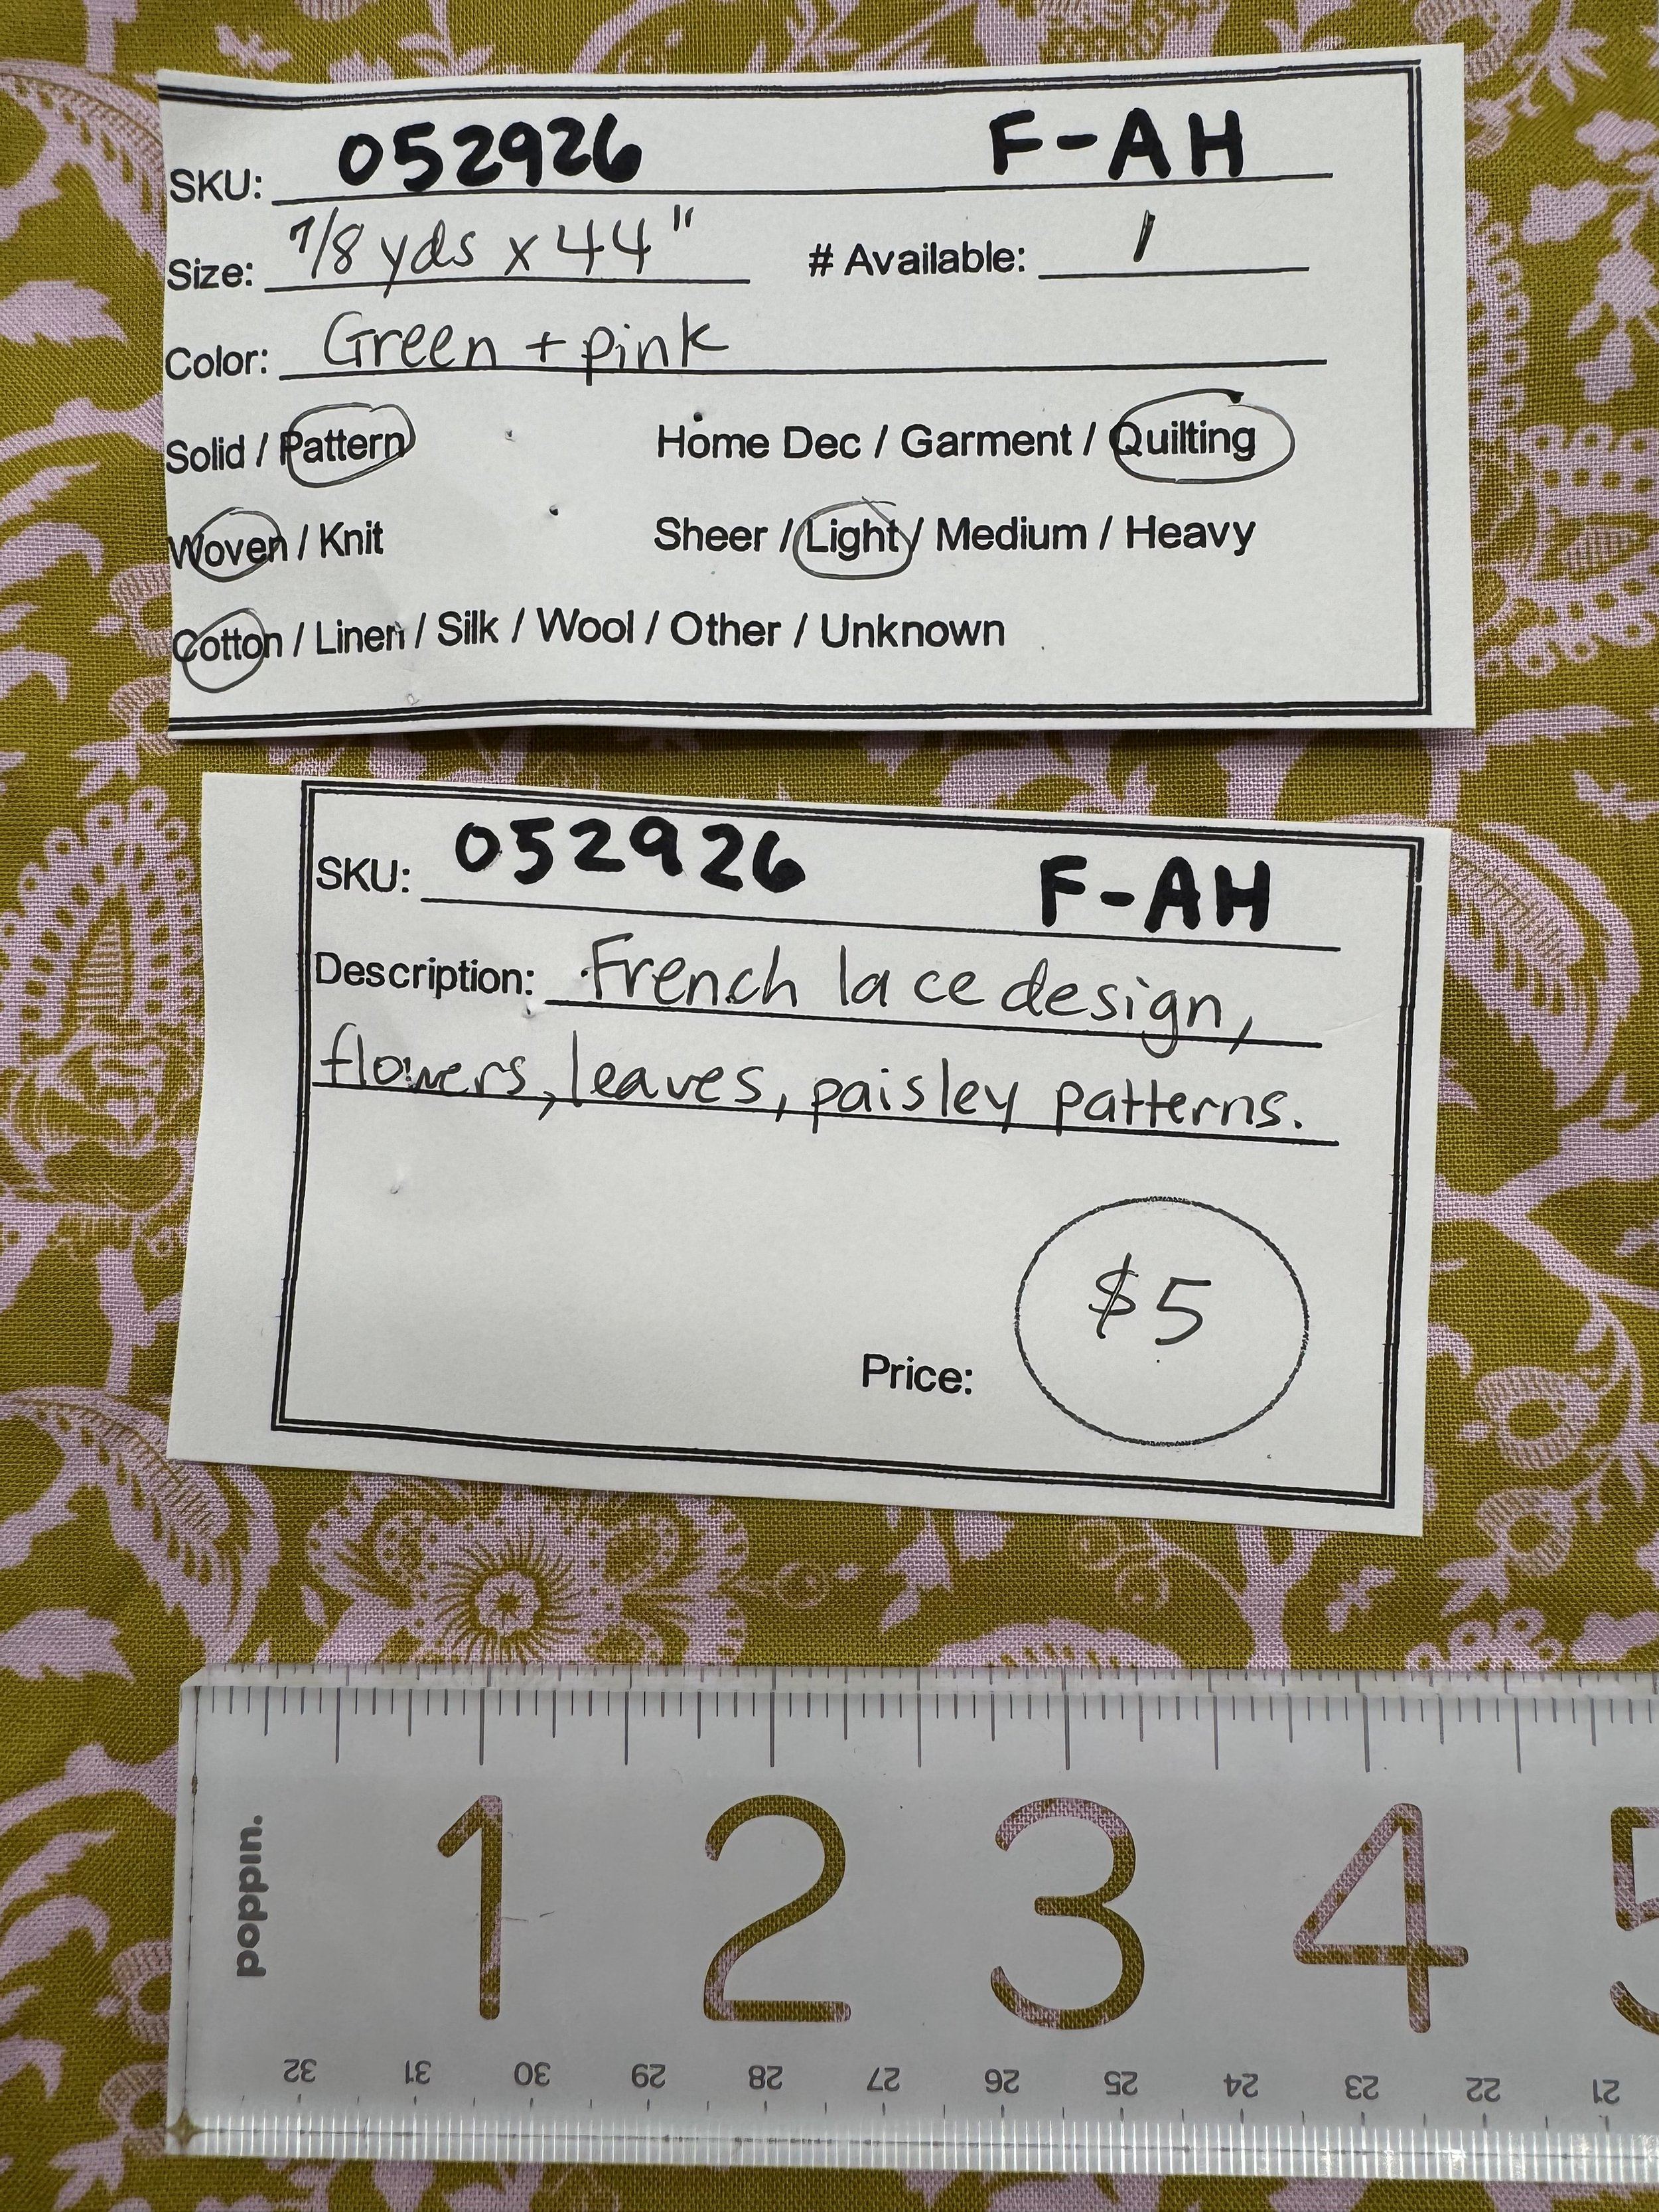 SKU: 052926 F-AH
Size: 7/8 yds x 44" # Available: 1
Color: Green + pink
Solid / Pattern Home Dec / Garment / Quilting
Woven / Knit Sheer / Light / Medium / Heavy
Cotton / Linen / Silk / Wool / Other / Unknown
SKU: 052926 F-AH
Description: French lace design,
flowers, leaves, paisley patterns.
$5
Price:
poppin.
1 2 3 4 5
32 31 30 29 28 27 26 25 24 23 22 21